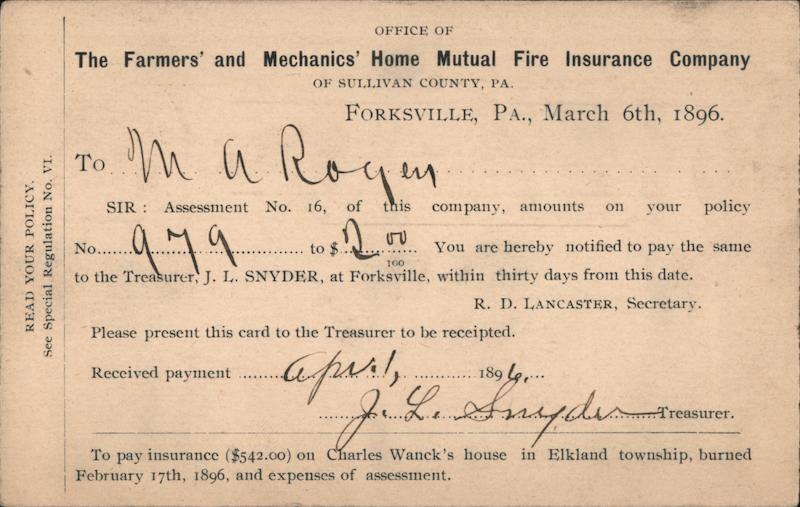 OFFICE OF
The Farmers' and Mechanics' Home Mutual Fire Insurance Company
OF SULLIVAN COUNTY, PA.
FORKSVILLE, PA., March 6th, 1896.
To M A Rogers
SIR: Assessment No. 16, of this company, amounts on your policy
No. 979 to $2 00/100 You are hereby notified to pay the same
to the Treasurer, J. L. SNYDER, at Forksville, within thirty days from this date.
R. D. LANCASTER, Secretary.
Please present this card to the Treasurer to be receipted.
Received payment Apr. 1, 1896.
J. L. Snyder Treasurer.
To pay insurance ($542.00) on Charles Wanck's house in Elkland township, burned
February 17th, 1896, and expenses of assessment.
READ YOUR POLICY.
See Special Regulation No. VI.